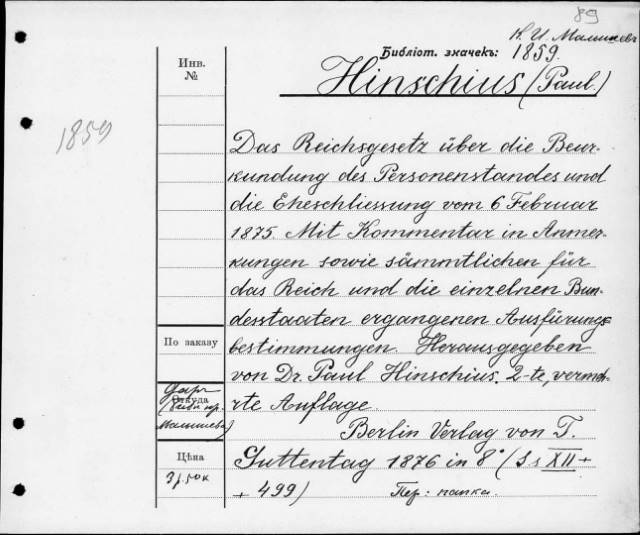 89
К. И. Малышевъ
Библіот. значекъ: 1859.
Инв.
№
Hinschius (Paul.)
1859
Das Reichsgesetz über die Beur-
kundung des Personenstandes und
die Eheschliessung vom 6 Februar
1875. Mit Kommentar in Anmer-
kungen sowie sämmtlichen für
das Reich und die einzelnen Bun-
desstaaten ergangenen Ausfürungs-
bestimmungen. Herausgegeben
По заказу
von Dr. Paul Hinschius. 2-te, vermeh-
rte Auflage.
Даръ
Откуда
Малышева)
Berlin Verlag von T.
Цѣна
Guttentag 1876 in 8° (S s XII +
3 р. 50 к
+ 499)
Пер: папка.